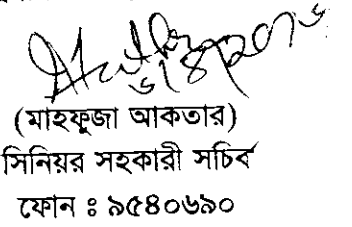 ৬/৪/২০১৬
(মাহফুজা আকতার)
সিনিয়র সহকারী সচিব
ফোন ঃ ৯৫৪০৬৯০